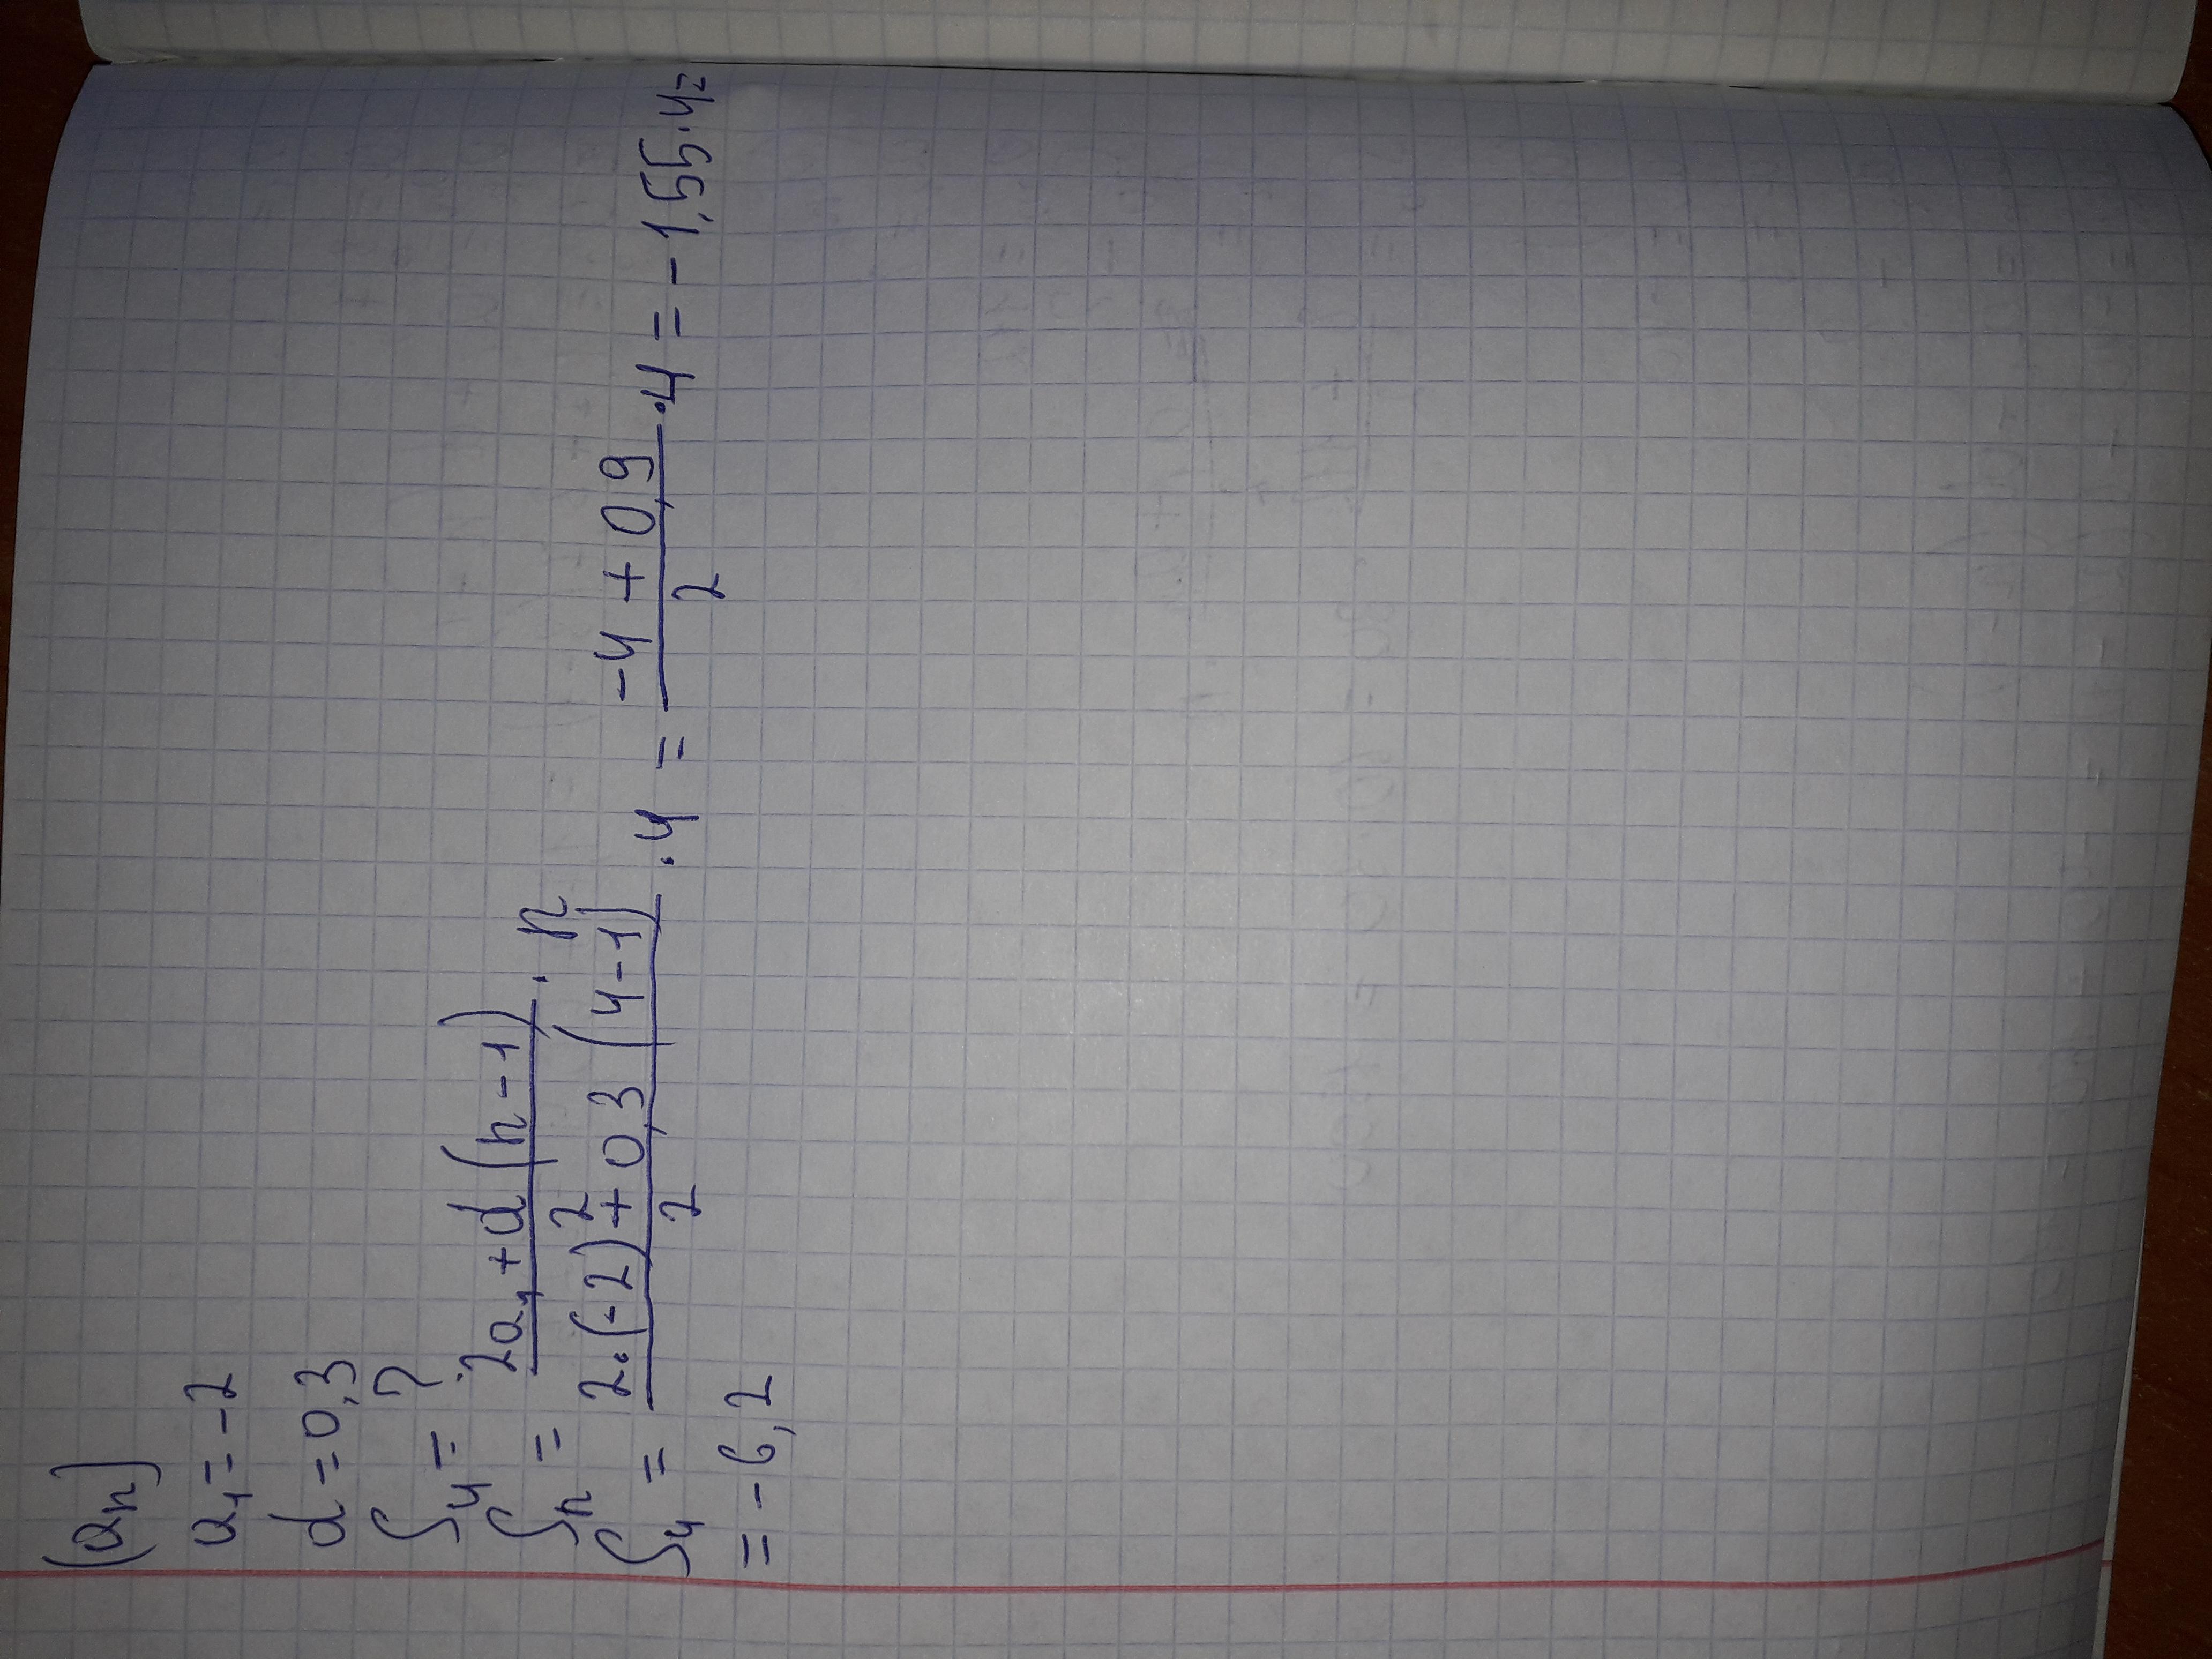 (aₙ)
a₁ = -2
d = 0,3
S₄ = ?
Sₙ = (2a₁ + d(n-1))/2 · n
S₄ = (2·(-2) + 0,3(4-1))/2 · 4 = (-4 + 0,9)/2 · 4 = -1,55·4=
= -6,2